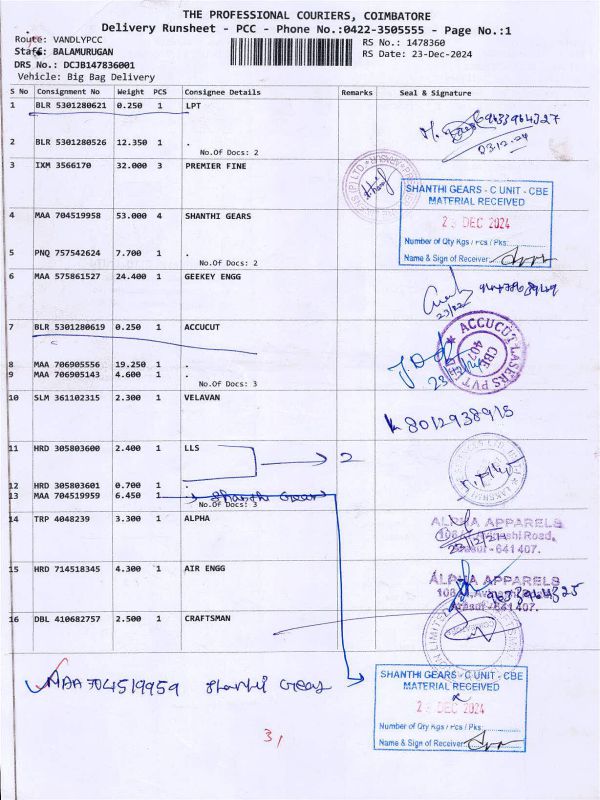 THE PROFESSIONAL COURIERS, COIMBATORE
Delivery Runsheet - PCC - Phone No.:0422-3505555 - Page No.:1
Route: VANDLYPCC RS No.: 1478360
Staff: BALAMURUGAN RS Date: 23-Dec-2024
DRS No.: DCJB147836001
Vehicle: Big Bag Delivery
S No Consignment No Weight PCS Consignee Details Remarks Seal & Signature
1 BLR 5301280621 0.250 1 LPT
23.12.24
2 BLR 5301280526 12.350 1 .
No.Of Docs: 2
3 IXM 3566170 32.000 3 PREMIER FINE
SHANTHI GEARS - C UNIT - CBE
MATERIAL RECEIVED
4 MAA 704519958 53.000 4 SHANTHI GEARS
23 DEC 2024
Number of Qty Kgs / Pcs / Pks:
5 PNQ 757542624 7.700 1 .
Name & Sign of Receiver:
No.Of Docs: 2
6 MAA 575861527 24.400 1 GEEKEY ENGG
7 BLR 5301280619 0.250 1 ACCUCUT
ACCUCUT LASERS PVT
CBE
8 MAA 706905556 19.250 1 .
9 MAA 706905143 4.600 1 .
No.Of Docs: 3
10 SLM 361102315 2.300 1 VELAVAN
8012938915
11 HRD 305803600 2.400 1 LLS
2
12 HRD 305803601 0.700 1 .
13 MAA 704519959 6.450 1 . Shanthi Gears
No.Of Docs: 3
14 TRP 4048239 3.300 1 ALPHA
ALPHA APPARELS
Road,
641 407.
15 HRD 714518345 4.300 1 AIR ENGG
ALPHA APPARELS
641 407.
16 DBL 410682757 2.500 1 CRAFTSMAN
MAA 704519959 Shanthi Gears
SHANTHI GEARS - C UNIT - CBE
MATERIAL RECEIVED
23 DEC 2024
Number of Qty Kgs / Pcs / Pks:
Name & Sign of Receiver: